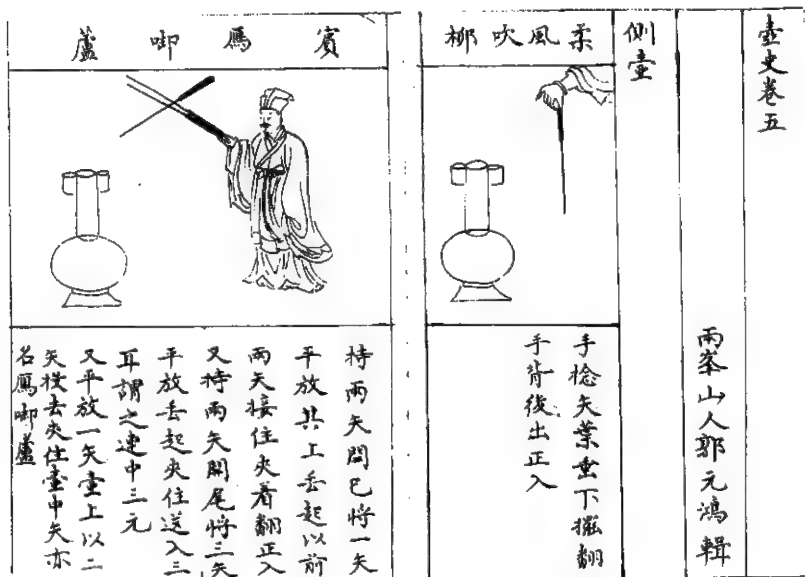 壺史卷五
兩峯山人郭元鴻輯
側壺
柔風吹柳
手捻矢葉垂下擺翻
手背後出正入
賓鴈啣蘆
持兩矢閗已將一矢
平放其上丢起以前
兩矢接住夾着翻正入
又持兩矢開尾將三矢
平放丢起夾住送入三
耳謂之連中三元
又平放一矢壺上以二
矢投去夾住壺中矢亦
名鴈啣蘆